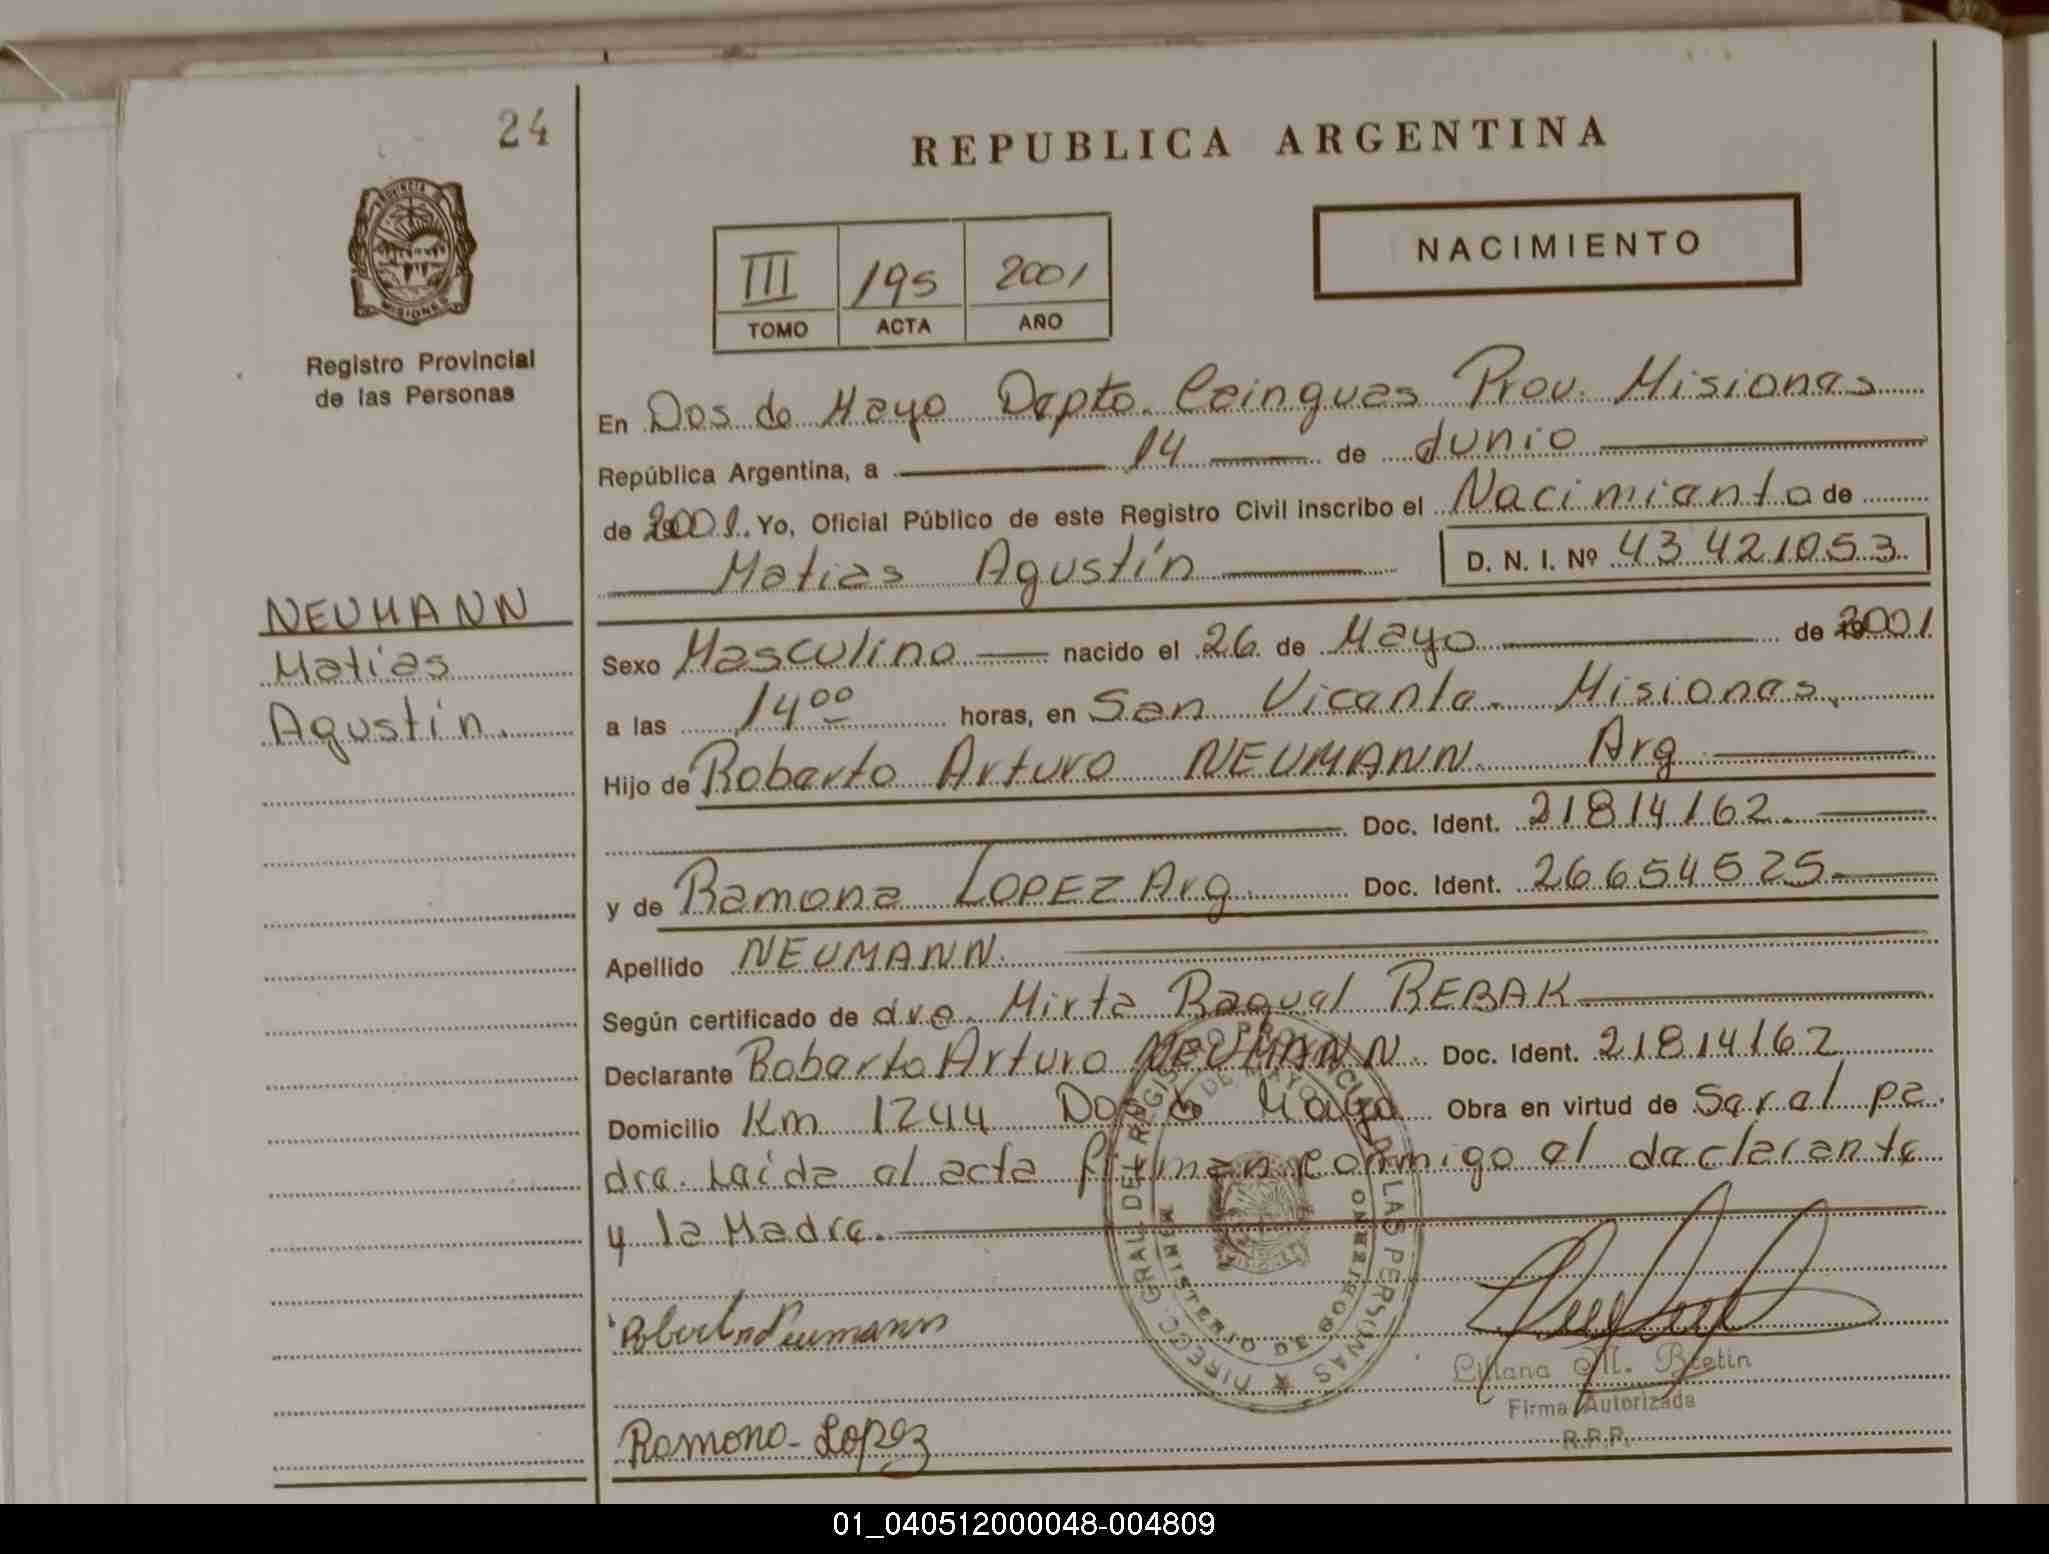 24
REPUBLICA ARGENTINA
NACIMIENTO
III 195 2001
TOMO ACTA AÑO
MISIONES
Registro Provincial
de las Personas
En Dos de Mayo Depto. Cainguas Prov. Misiones
República Argentina, a 14 de Junio
de 2001. Yo, Oficial Público de este Registro Civil inscribo el Nacimiento de
Matias Agustín D. N. I. Nº 43 421053
NEUMANN
Matías
Agustín.
Sexo Masculino nacido el 26 de Mayo de 2001
a las 14 00 horas, en San Vicente. Misiones.
Hijo de Roberto Arturo NEUMANN. Arg
Doc. Ident. 21814162.
y de Ramona LOPEZ Arg. Doc. Ident. 26654525
Apellido NEUMANN.
Según certificado de dra. Mirta Raquel REBAK
Declarante Roberto Arturo NEUMANN. Doc. Ident. 21814162
Domicilio Km 1244 Dos de Mayo Obra en virtud de Ser el pa
dre. Leída el acta firman conmigo el declarante
y la Madre.
DIRECC. GRAL DEL REGISTRO PROVINCIAL DE LAS PERSONAS
DE MAYO
MINISTERIO DE GOBIERNO
Roberto Neumann
Liliana M. Bretin
Firma Autorizada
R.P.P.
Ramona Lopez
01_040512000048-004809